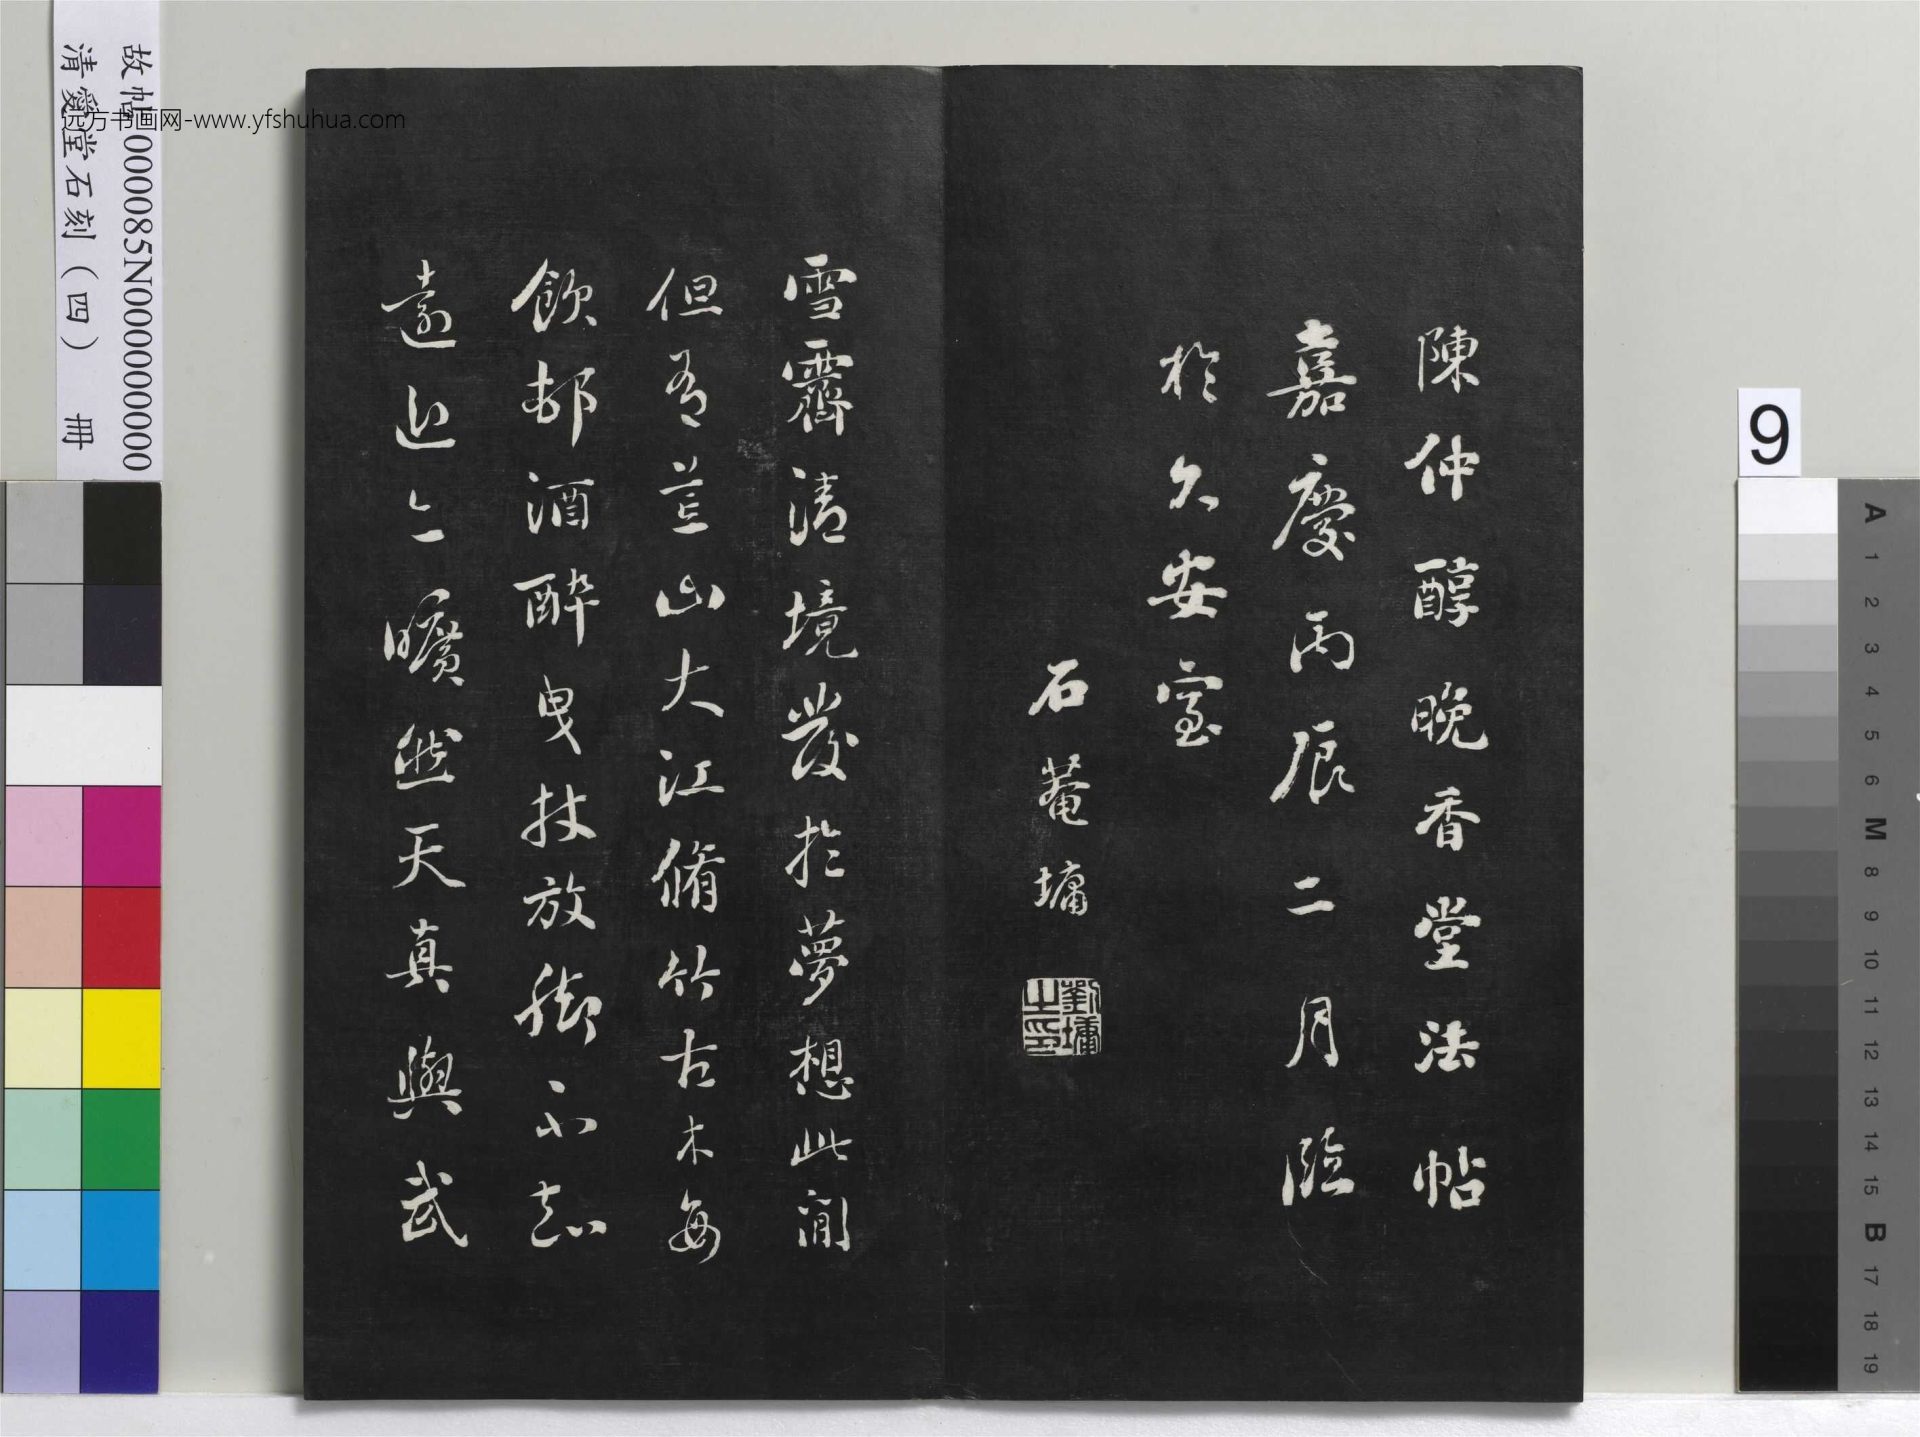 陳仲醇晚香堂法帖
嘉慶丙辰二月臨
於久安室
石菴墉
劉墉之印
雪霽清境發於夢想此間
但有荒山大江脩竹古木每
飲邨酒醉曳杖放腳不知
遠近亦曠然天真與武
故帖000085N000000000
清愛堂石刻（四） 冊
远方书画网-www.yfshuhua.com
9
A
1
2
3
4
5
6
M
8
9
10
11
12
13
14
15
B
17
18
19